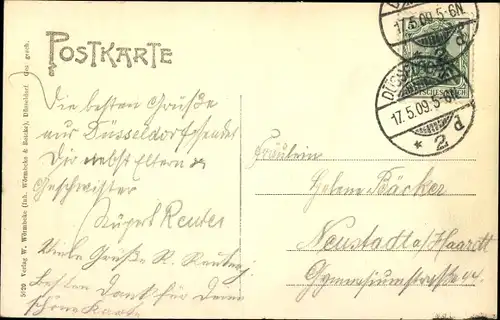 POSTKARTE
Die besten Grüße
aus Düsseldorf sendet
Dir nebst Eltern &
Geschwister
Rupert Reuter
Viele Grüße R.
Besten Dank für Deine
schöne Karte
Fräulein
Helene Bäcker
Neustadt a/Haardt
Gymnasiumstraße
17.5.09.5-6N.
2d
DÜSSELDORF
17.5.09.5-6N.
* 2d
5029 Verlag W. Wörmbcke (Inh. Wörmbcke & Reucke), Düsseldorf. Ges. gesch.